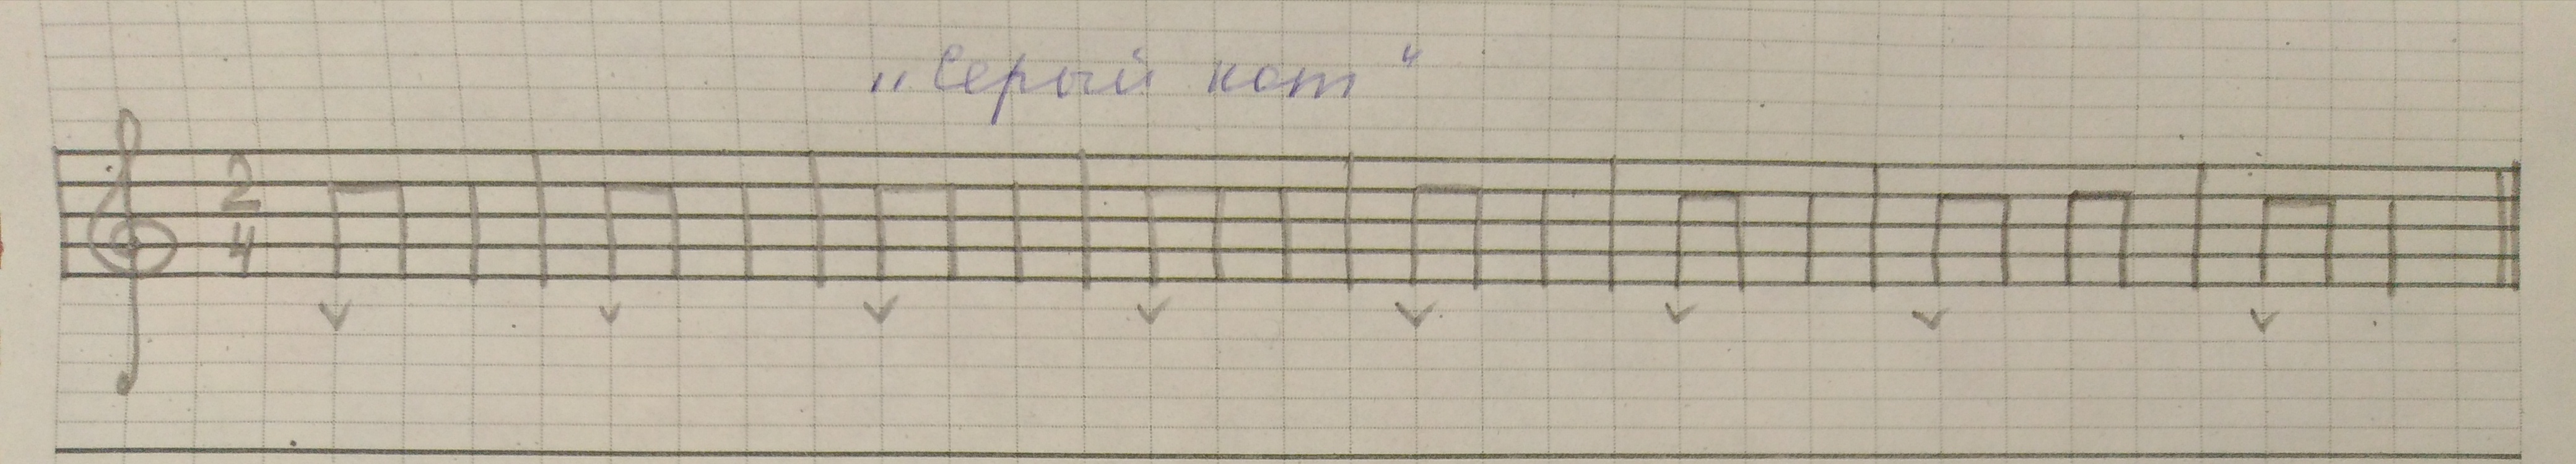 „Серый кот“
2
4